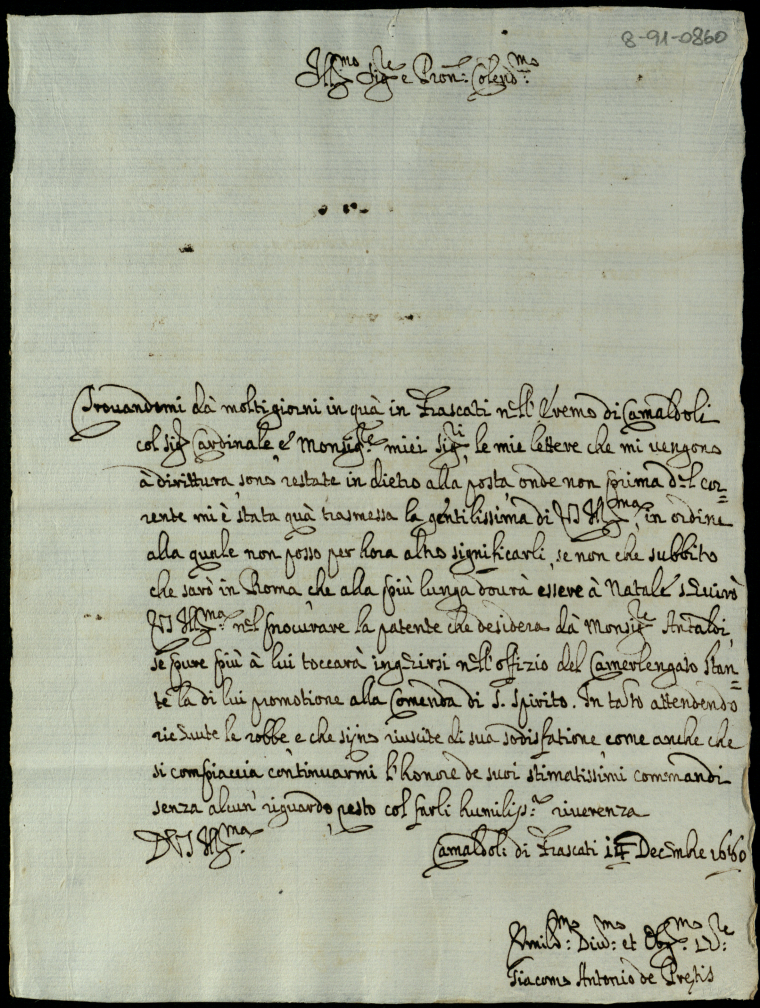 8-91-0860
Ill.mo Sig.re e Pron: Colend.mo
Trouandomi dà molti giorni in quà in Frascati nell'Eremo di Camaldoli
col Sig.r Cardinale e Monsig.re miei Sig.ri le mie lettere che mi uengono
à dirittura sono restate in dietro alla posta, onde non prima del cor=
rente mi è stata quà trasmessa la gentilissima di VS Ill.ma, in ordine
alla quale non posso per hora altro significarli, se non che subbito
che sarò in Roma che alla più lunga dourà essere à Natale seruirò
VS Ill.ma nel procurare la patente che desidera dà Monsig.re Antaldi,
se pure più à lui toccarà ingerirsi nell'offizio del Camerlengato stan=
te la di lui promotione alla Comenda di S. Spirito. In tanto attendendo
riceuute le robbe e che sijno riuscite di sua sodisfatione come anche che
si compiaccia continuarmi l'honore de suoi stimatissimi commandi
senza alcun' riguardo resto col farli humiliss.a riuerenza
D VS Ill.ma
Camaldoli di Frascati 14 Decembre 1660
Humild.mo Diu.mo et Obl.mo S.re
Giacomo Antonio de Pretis